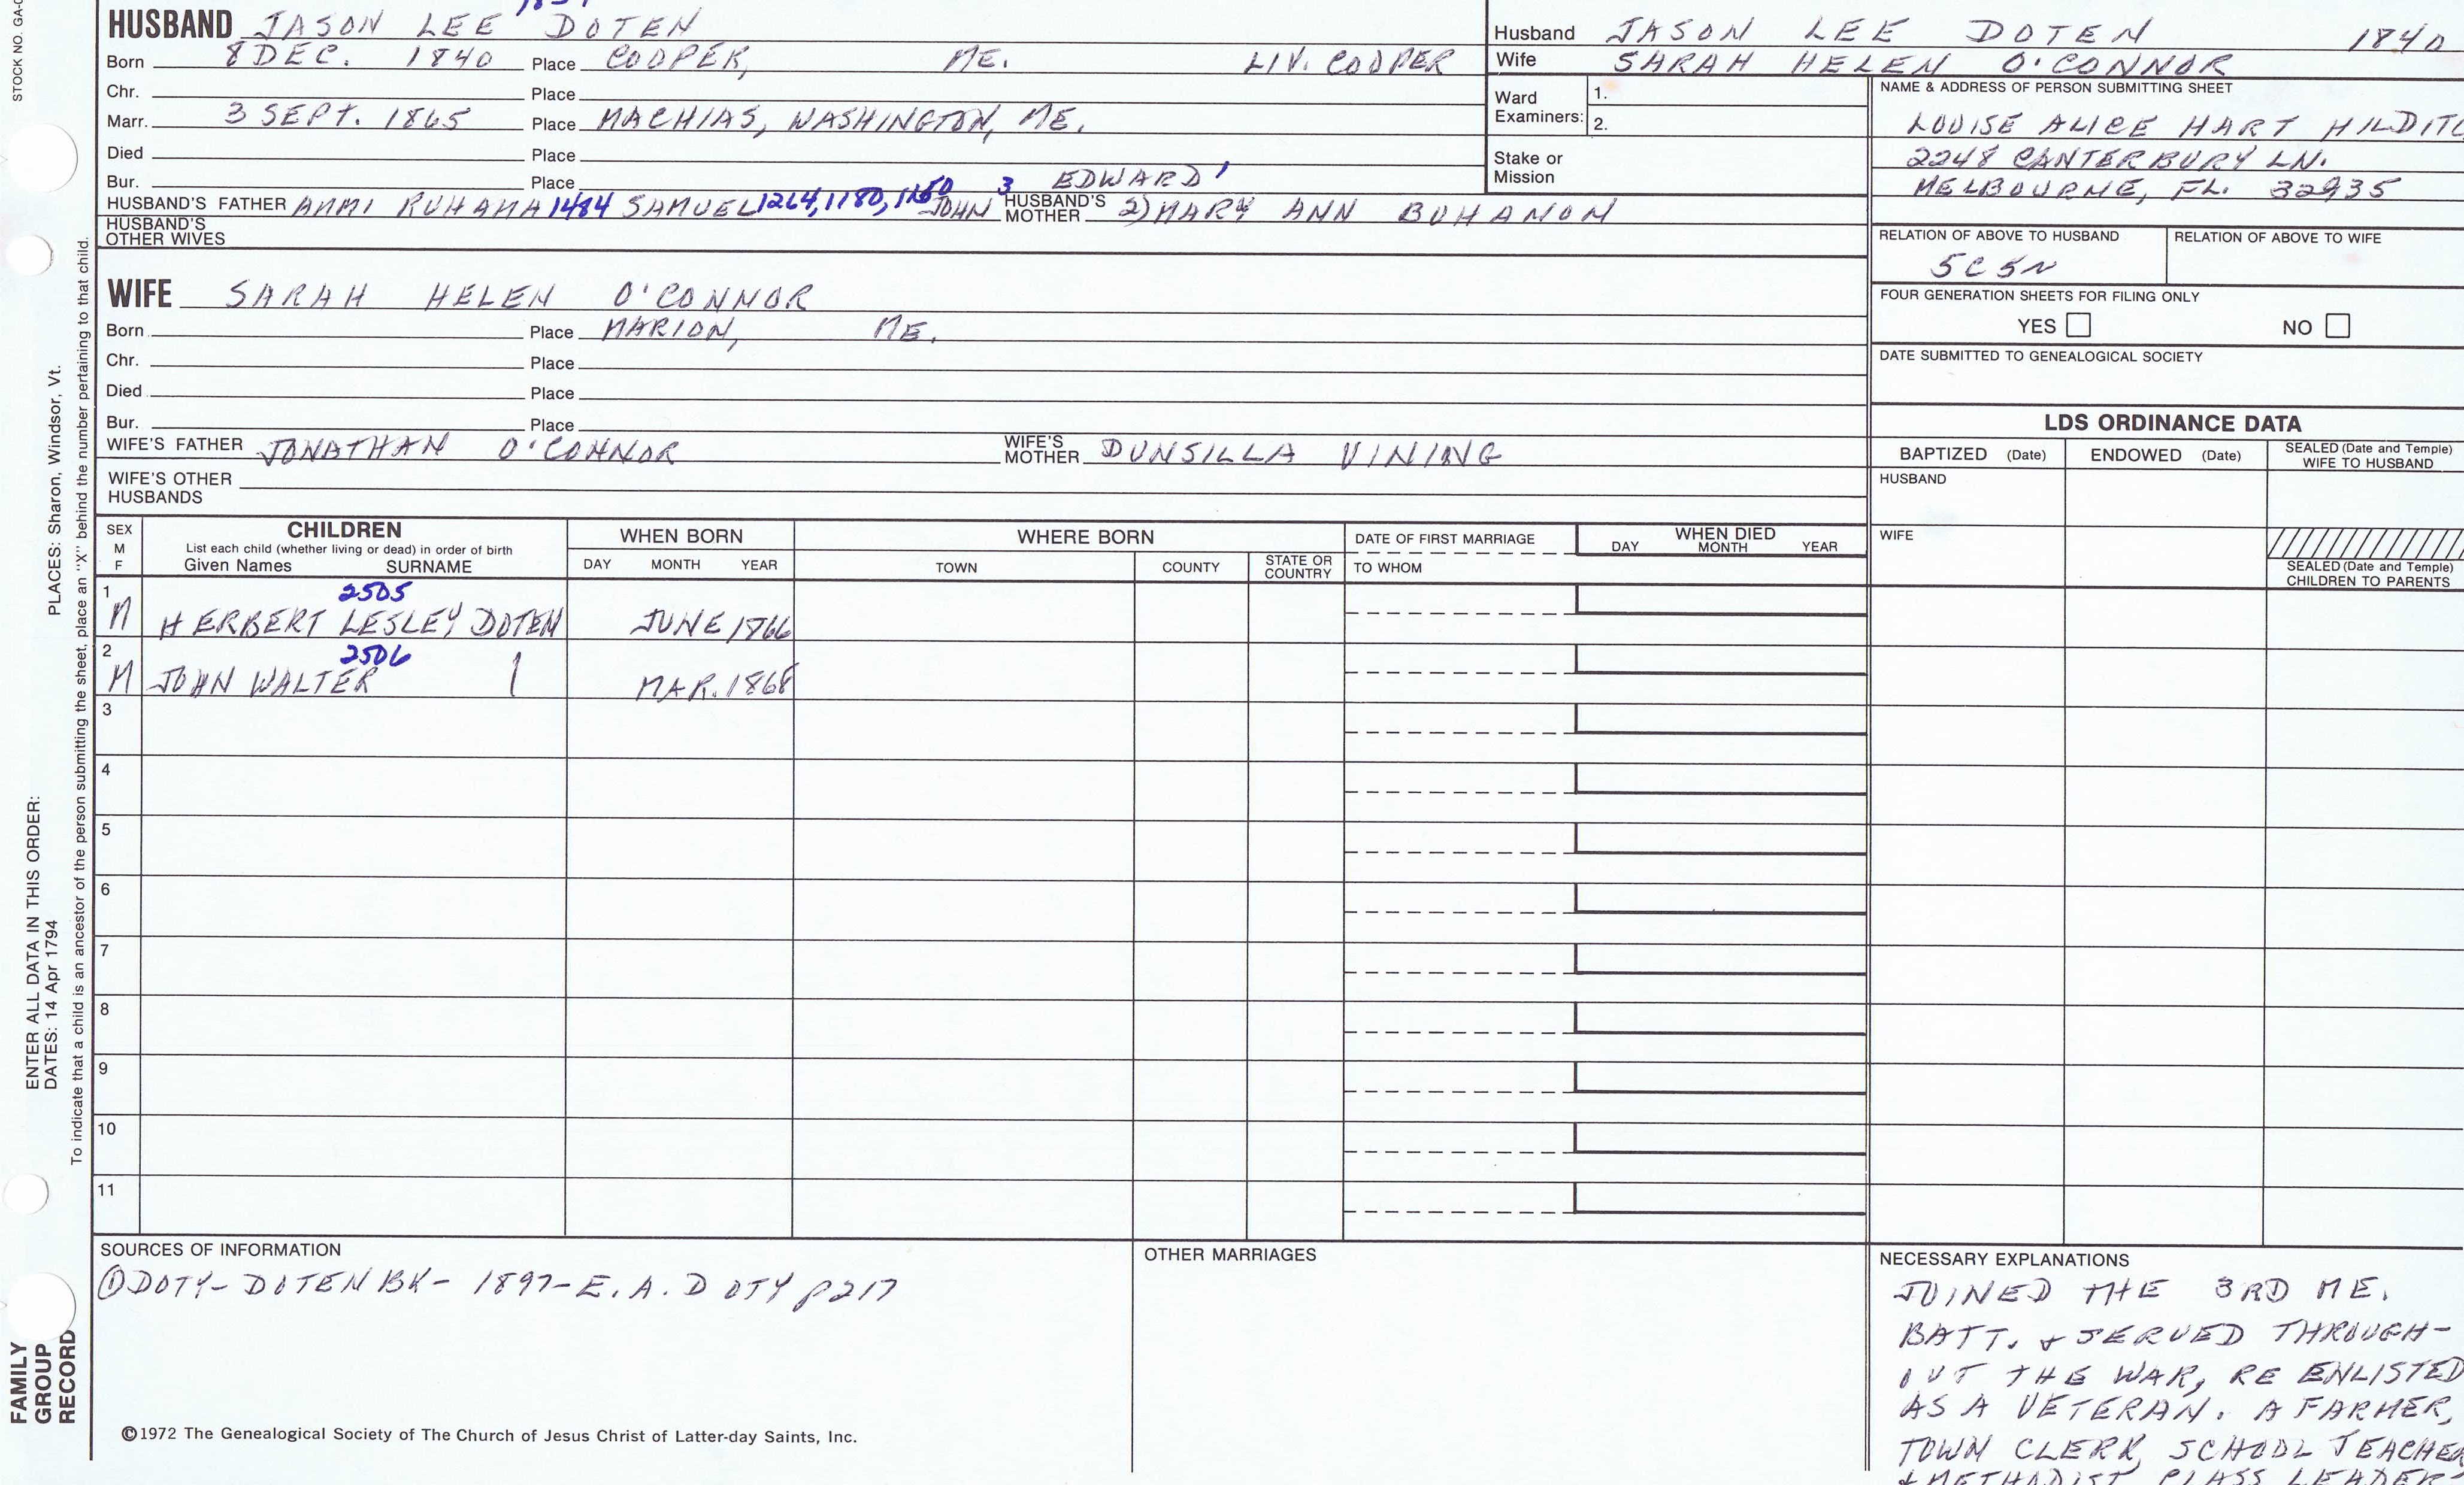 STOCK NO. GA-
HUSBAND JASON LEE DOTEN
Born 8 DEC. 1840 Place COOPER, ME. LIV. COOPER
Chr. Place
Marr. 3 SEPT. 1865 Place MACHIAS, WASHINGTON, ME.
Died Place
Bur. Place 3 EDWARD 1
HUSBAND'S FATHER AMMI RUHAMA 1484 SAMUEL 1264, 1180, 1160 JOHN HUSBAND'S MOTHER 2) MARY ANN BUHANON
HUSBAND'S OTHER WIVES
Husband JASON LEE DOTEN 1840
Wife SARAH HELEN O'CONNOR
Ward Examiners: 1.
2.
Stake or Mission
NAME & ADDRESS OF PERSON SUBMITTING SHEET
LOUISE ALICE HART HILDITC
2248 CANTERBURY LN.
MELBOURNE, FL. 32935
RELATION OF ABOVE TO HUSBAND RELATION OF ABOVE TO WIFE
5C 5N
FOUR GENERATION SHEETS FOR FILING ONLY
YES NO
DATE SUBMITTED TO GENEALOGICAL SOCIETY
WIFE SARAH HELEN O'CONNOR
Born Place MARION, ME.
Chr. Place
Died Place
Bur. Place
WIFE'S FATHER JONATHAN O'CONNOR WIFE'S MOTHER DUNSILLA VINING
WIFE'S OTHER HUSBANDS
LDS ORDINANCE DATA
BAPTIZED (Date) ENDOWED (Date) SEALED (Date and Temple) WIFE TO HUSBAND
HUSBAND
WIFE
SEALED (Date and Temple) CHILDREN TO PARENTS
SEX M F
CHILDREN
List each child (whether living or dead) in order of birth
Given Names SURNAME
WHEN BORN
DAY MONTH YEAR
WHERE BORN
TOWN COUNTY STATE OR COUNTRY
DATE OF FIRST MARRIAGE
TO WHOM
WHEN DIED
DAY MONTH YEAR
1 2505
M HERBERT LESLEY DOTEN JUNE 1866
2 2506
M JOHN WALTER MAR. 1868
3
4
5
6
7
8
9
10
11
SOURCES OF INFORMATION
① DOTY-DOTEN BK- 1897- E. A. DOTY p217
OTHER MARRIAGES
NECESSARY EXPLANATIONS
JOINED THE 3RD ME.
BATT. + SERVED THROUGH-
OUT THE WAR, RE ENLISTED
AS A VETERAN. A FARMER,
TOWN CLERK, SCHOOL TEACHER
+ METHODIST CLASS LEADER-
©1972 The Genealogical Society of The Church of Jesus Christ of Latter-day Saints, Inc.
ENTER ALL DATA IN THIS ORDER:
DATES: 14 Apr 1794 PLACES: Sharon, Windsor, Vt.
To indicate that a child is an ancestor of the person submitting the sheet, place an "X" behind the number pertaining to that child.
FAMILY
GROUP
RECORD